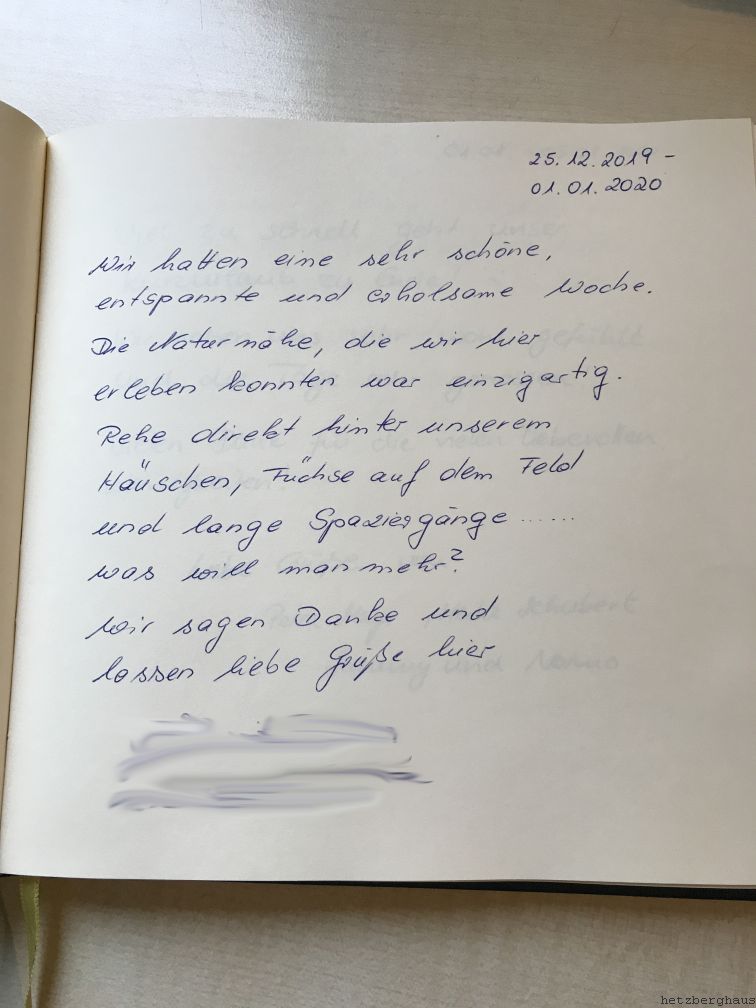 25.12.2019 –
01.01.2020
Wir hatten eine sehr schöne,
entspannte und erholsame Woche.
Die Naturnähe, die wir hier
erleben konnten war einzigartig.
Rehe direkt hinter unserem
Häuschen, Füchse auf dem Feld
und lange Spaziergänge ......
was will man mehr?
Wir sagen Danke und
lassen liebe Grüße hier
hetzberghaus